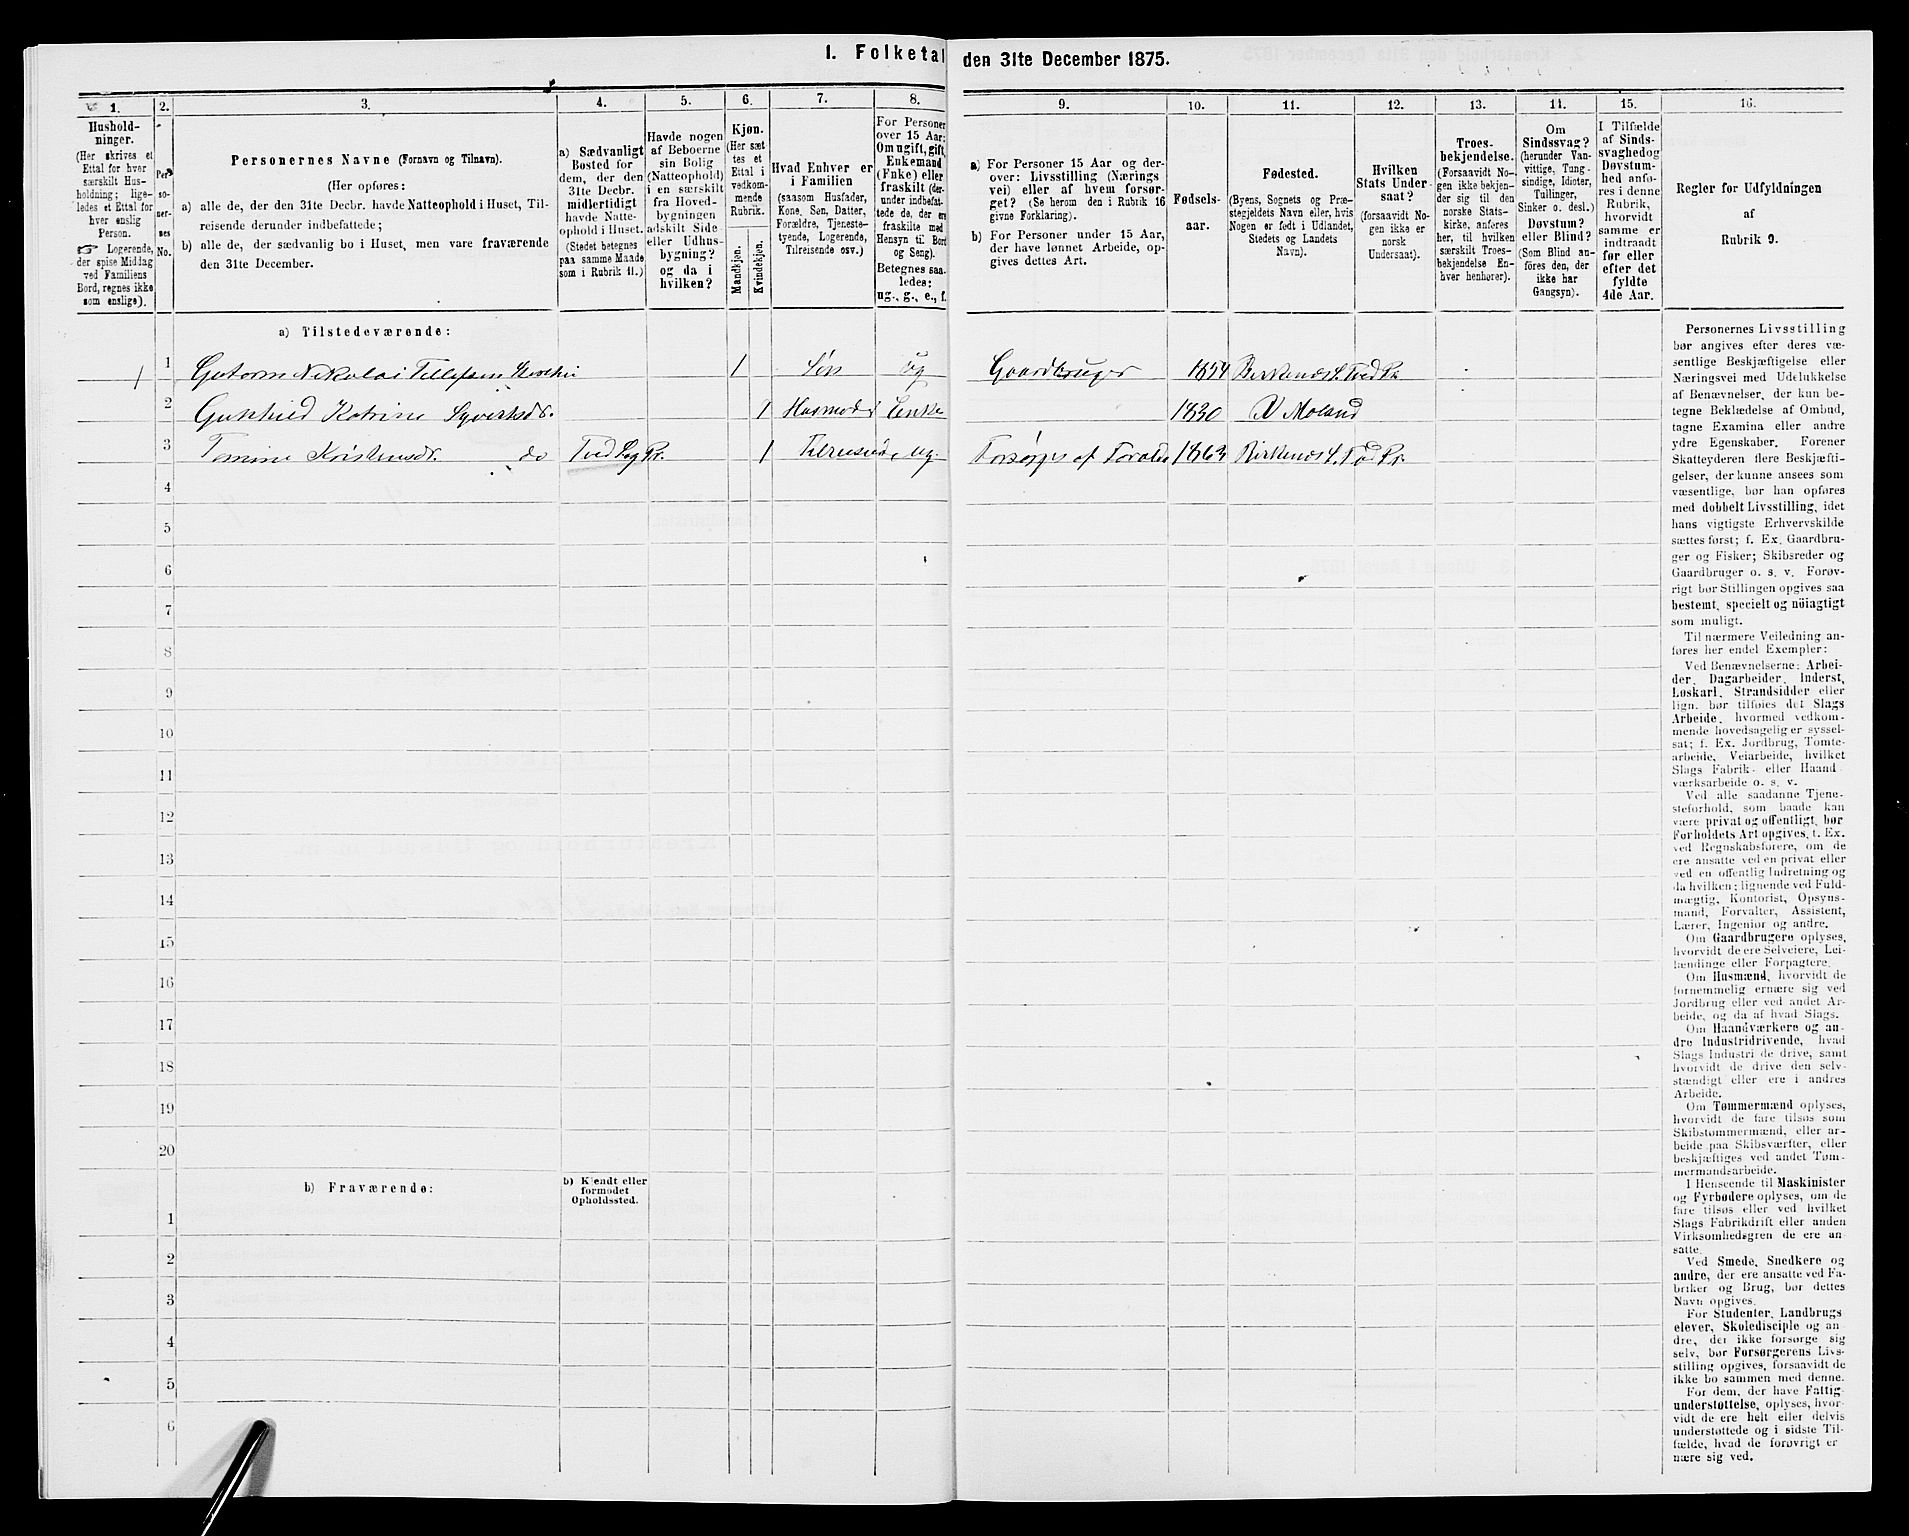 I. Folketal den 31te December 1875.
1. 2. 3. 4. 5. 6. 7. 8. 9. 10. 11. 12. 13. 14. 15. 16.
Hushold-
ninger.
(Her skrives et
Ettal for hver
særskilt Hus-
holdning; lige-
ledes et Ettal for
hver enslig
Person.
☞ Logerende,
der spise Middag
ved Familiens
Bord, regnes ikke
som enslige).
Per-
so-
ner-
nes
No.
Personernes Navne (Fornavn og Tilnavn).
(Her opføres:
a) alle de, der den 31te Decbr. havde Natteophold i Huset, Til-
reisende derunder indbefattede;
b) alle de, der sædvanlig bo i Huset, men vare fraværende
den 31te December.
a) Sædvanligt
Bosted for
dem, der den
31te Decbr.
midlertidigt
havde Natte-
ophold i Huset.
(Stedet betegnes
paa samme Maade
som i Rubrik 11.)
Havde nogen
af Beboerne
sin Bolig
(Natteophold)
i en særskilt
fra Hoved-
bygningen
adskilt Side
eller Udhus-
bygning?
og da i
hvilken?
Kjøn.
(Her sæt-
tes et
Ettal i
vedkom-
mende
Rubrik.
Mandkjøn.
Kvindekjøn.
Hvad Enhver er
i Familien
(saasom Husfader,
Kone, Søn, Datter,
Forældre, Tjeneste-
tyende, Logerende,
Tilreisende osv.)
For Personer
over 15 Aar:
Om ugift, gift,
Enkemand
(Enke) eller
fraskilt (der-
under indbefat-
tede de, der ere
fraskilte med
Hensyn til Bord
og Seng).
Betegnes saa-
ledes:
ug., g., e., f.
a) For Personer 15 Aar og der-
over: Livsstilling (Nærings
vei) eller af hvem forsør-
get? (Se herom den i Rubrik 16
givne Forklaring).
b) For Personer under 15 Aar,
der have lønnet Arbeide, op-
gives dettes Art.
Fødsels-
aar.
Fødested.
(Byens, Sognets og Præ-
stegjeldets Navn eller, hvis
Nogen er født i Udlandet,
Stedets og Landets
Navn).
Hvilken
Stats Under-
saat?
(forsaavidt No-
gen ikke er
norsk
Undersaat).
Troes-
bekjendelse.
(Forsaavidt No-
gen ikke bekjen-
der sig til den
norske Stats-
kirke, anføres
her, til hvilken
særskilt Troes-
bekjendelse En-
hver henhører).
Om
Sindssvag?
(herunder Van-
vittige, Tung-
sindige, Idioter,
Tullinger,
Sinker o. desl.)
Døvstum?
eller Blind?
(Som Blind an-
føres den, der
ikke har
Gangsyn).
I Tilfælde
af Sinds-
svaghed og
Døvstum-
hed anfø-
res i denne
Rubrik,
hvorvidt
samme er
indtraadt
før eller
efter det
fyldte
4de Aar.
Regler for Udfyldningen
af
Rubrik 9.
a) Tilstedeværende:
1 1 Gutorm Nikolai Tellefsen 1 Søn ug Gaardbruger 1854 Birkenæs S. Tved Pr.
2 Gunhild Katrine Syvertsdr. 1 Husmoder Enke 1830 V Moland
3 Tomine Kristensdr. do Tved Sg Pr. 1 Tilreisende ug. Forsørges af Foræld. 1863 Birkenæs S. Tved Pr.
4
5
6
7
8
9
10
11
12
13
14
15
16
17
18
19
20
b) Fraværende:
b) Kjendt eller
formodet
Opholdssted.
1
2
3
4
5
6
Personernes Livsstilling
bør angives efter deres væ-
sentlige Beskjæftigelse eller
Næringsvei med Udelukkelse
af Benævnelser, der kun be-
tegne Beklædelse af Ombud,
tagne Examina eller andre
ydre Egenskaber. Forener
Skatteyderen flere Beskjæfti-
gelser, der kunne ansees som
væsentlige, bør han opføres
med dobbelt Livsstilling, idet
hans vigtigste Erhvervskilde
sættes først; f. Ex. Gaardbru-
ger og Fisker; Skibsreder og
Gaardbruger o. s. v. Forøv-
rigt bør Stillingen opgives saa
bestemt, specielt og nöiagtigt
som muligt.
Til nærmere Veiledning an-
føres her endel Exempler:
Ved Benævnelserne: Arbei-
der, Dagarbeider, Inderst,
Løskarl, Strandsidder eller
lign. bør tilføies det Slags
Arbeide, hvormed vedkom-
mende hovedsagelig er syssel-
sat; f. Ex. Jordbrug, Tomte-
arbeide, Veiarbeide, hvilket
Slags Fabrik- eller Haand-
værksarbeide o. s. v.
Ved alle saadanne Tjene-
steforhold, som baade kan
være privat og offentligt, bør
Forholdets Art opgives, t. Ex.
ved Regnskabsførere, om de
ere ansatte ved en privat eller
ved en offentlig Indretning og
da hvilken; lignende ved Fuld-
mægtig, Kontorist, Opsyns-
mand, Forvalter, Assistent,
Lærer, Ingeniør og andre.
Om Gaardbrugere oplyses,
hvorvidt de ere Selveiere, Lei-
lændinge eller Forpagtere.
Om Husmænd, hvorvidt de
fornemmelig ernære sig ved
Jordbrug eller ved andet Ar-
beide, og da af hvad Slags.
Om Haandværkere og an-
dre Industridrivende, hvad
Slags Industri de drive, samt
hvorvidt de drive den selv-
stændigt eller ere i andres
Arbeide.
Om Tømmermænd oplyses,
hvorvidt de fare tilsøs som
Skibstømmermænd, eller ar-
beide paa Skibsværfter, eller
beskjæftiges ved andet Tøm-
mermandsarbeide.
I Henseende til Maskinister
og Fyrbødere oplyses, om de
fare tilsøs eller ved hvilket
Slags Fabrikdrift eller anden
Virksomhedsgren de ere an-
satte.
Ved Smede, Snedkere og
andre, der ere ansatte ved Fa-
briker og Brug, bør dettes
Navn opgives.
For Studenter, Landbrugs-
elever, Skoledisciple og an-
dre, der ikke forsørge sig
selv, bør Forsørgerens Livs-
stilling opgives, forsaavidt de
ikke bo sammen med denne.
For dem, der have Fattig-
understøttelse, oplyses, hvor-
vidt de ere helt eller delvis
understøttede og i sidste Til-
fælde, hvad de forøvrigt er-
nære sig ved.